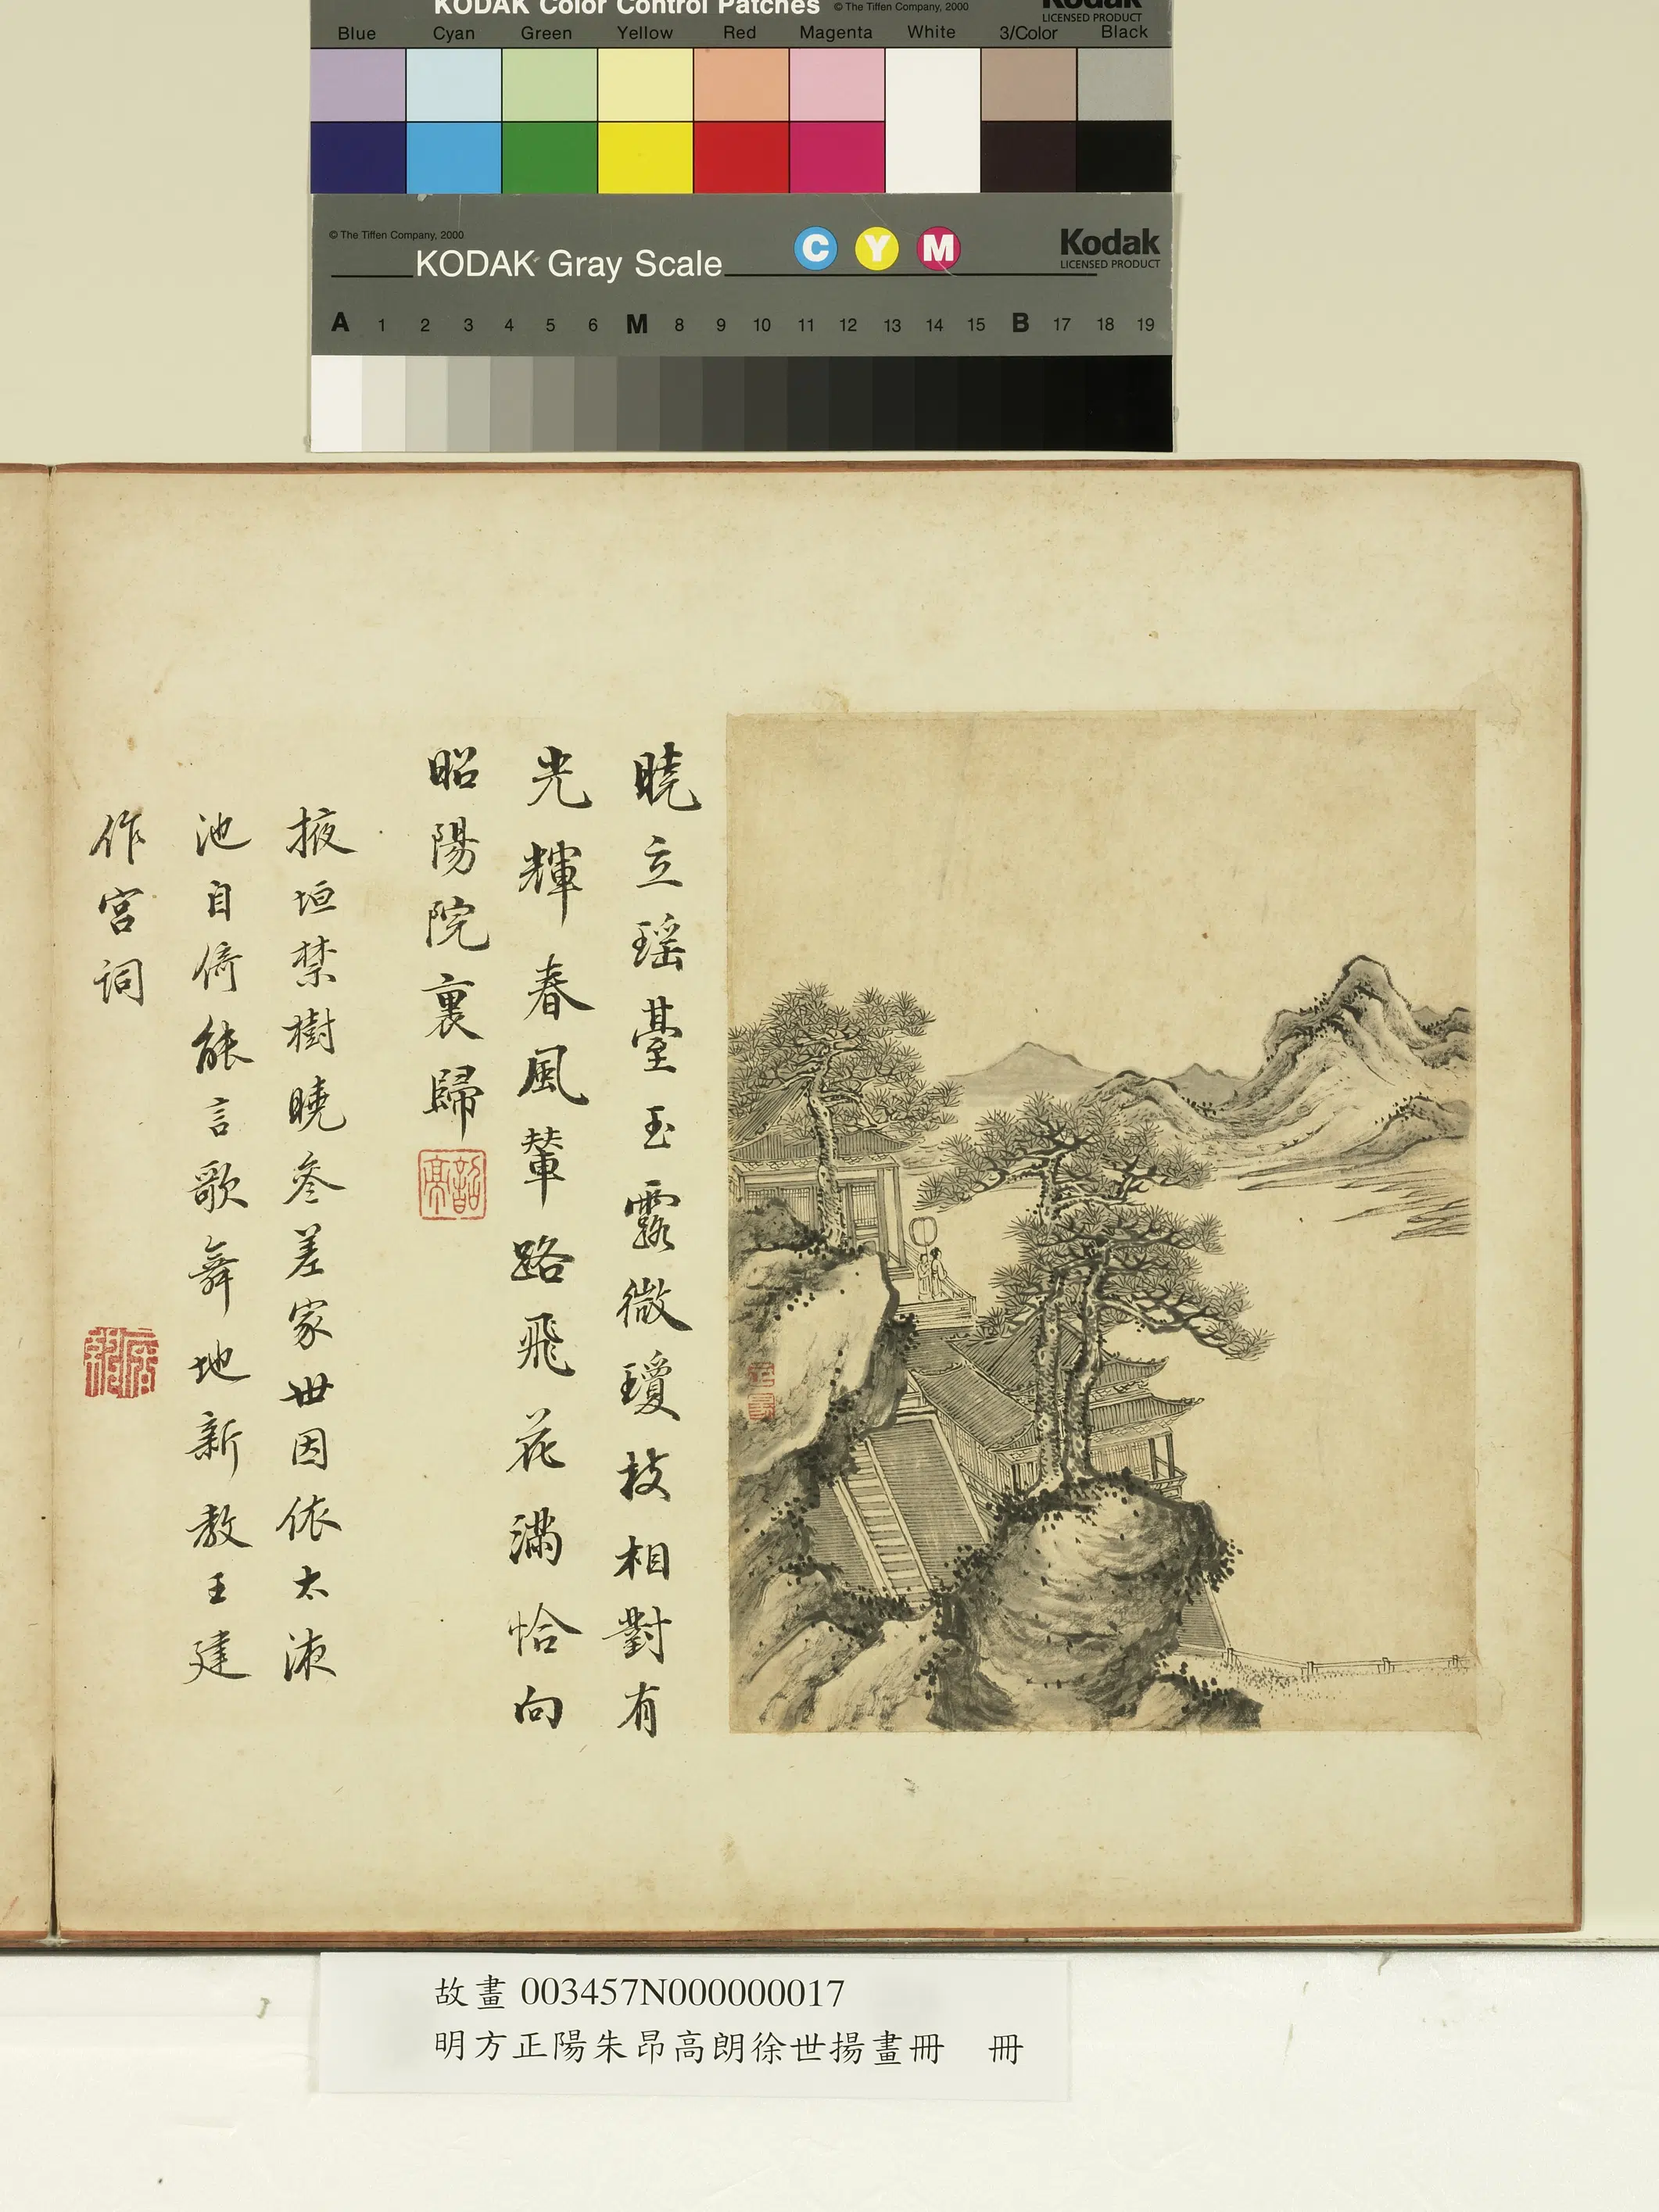 KODAK Color Control Patches © The Tiffen Company, 2000 Kodak
LICENSED PRODUCT
Blue Cyan Green Yellow Red Magenta White 3/Color Black
© The Tiffen Company, 2000
KODAK Gray Scale C Y M Kodak
LICENSED PRODUCT
A 1 2 3 4 5 6 M 8 9 10 11 12 13 14 15 B 17 18 19
曉立瑶臺玉露微瓊枝相對有
光輝春風輦路飛花滿恰向
昭陽院裏歸
掖垣禁樹曉參差家世因依太液
池自倚能言歌舞地新教王建
作宮詞
故畫 003457N000000017
明方正陽朱昂高朗徐世揚畫冊 冊